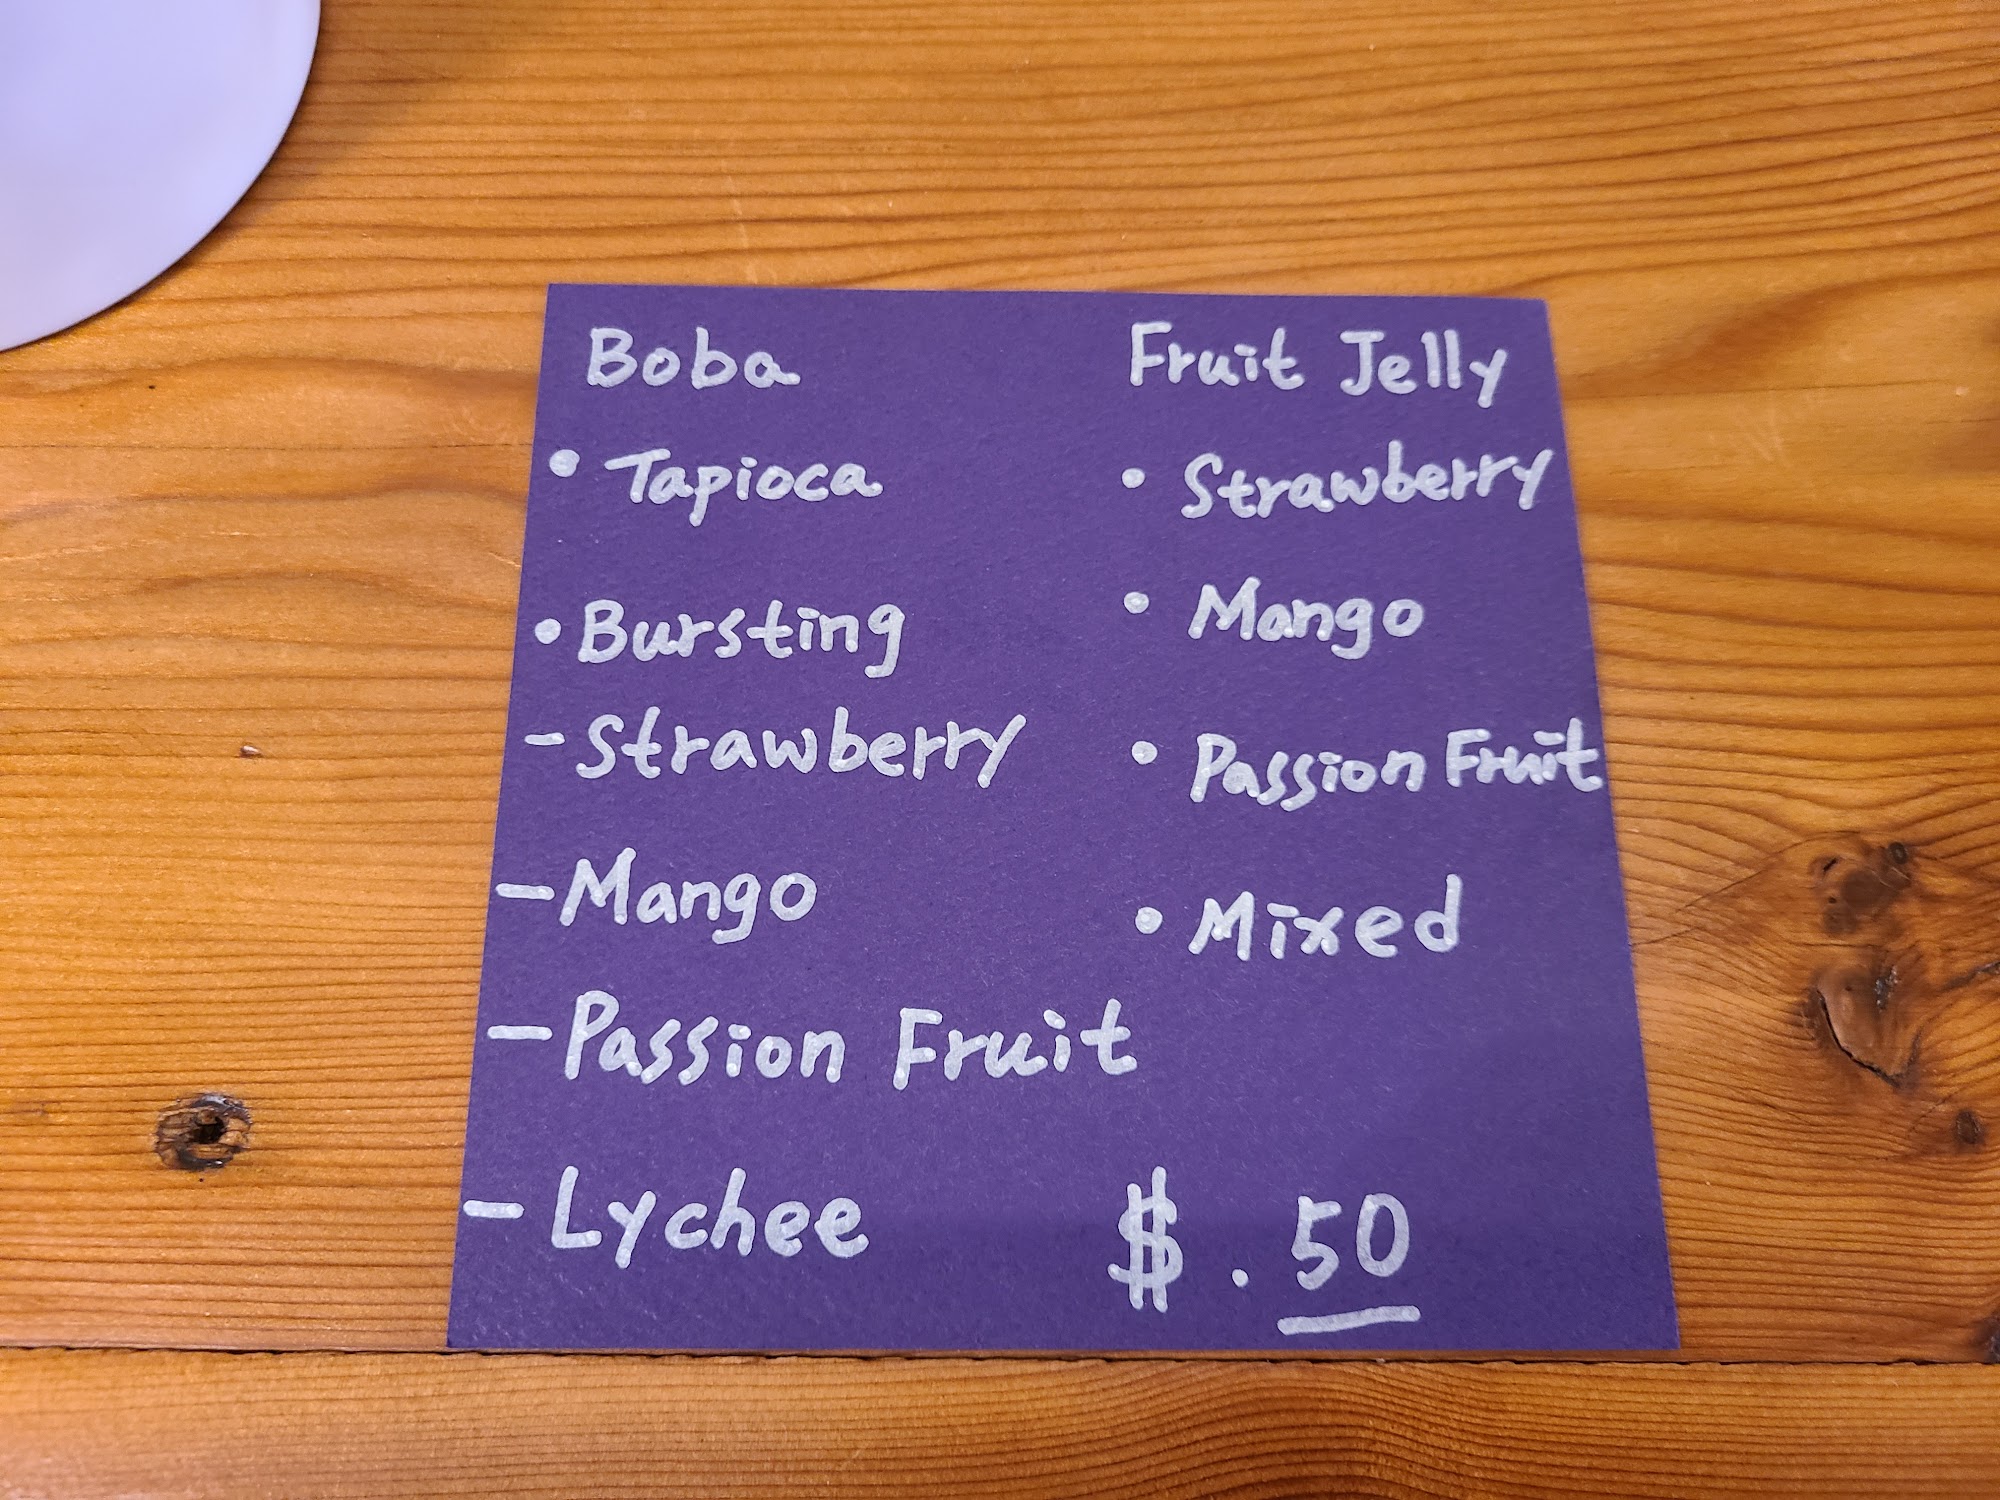 Boba
• Tapioca
• Bursting
- Strawberry
- Mango
- Passion Fruit
- Lychee
Fruit Jelly
• Strawberry
• Mango
• Passion Fruit
• Mixed
$ .50